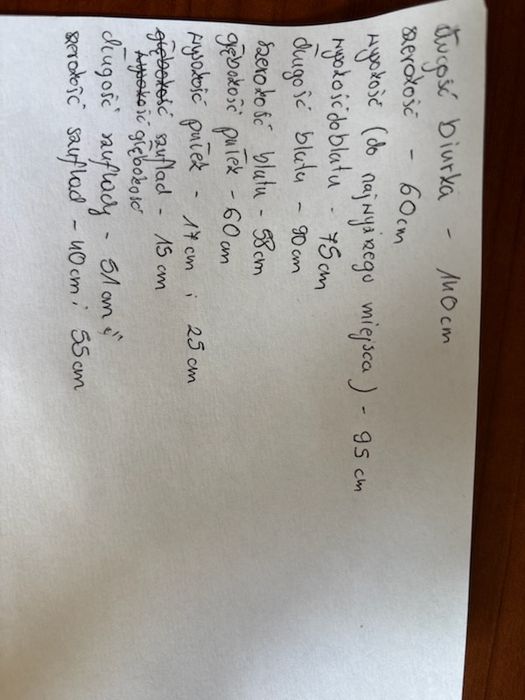 długość biurka - 140cm
szerokość - 60cm
wysokość (do najwyższego miejsca) - 95 cm
wysokość do blatu - 75cm
długość blatu - 90cm
szerokość blatu - 58cm
głębokość półek - 60cm
wysokość półek - 17cm i 25cm
głębokość szuflad - 15cm
wysokość głębokość
długość szuflady - 51cm
szerokość szuflad - 40cm i 55cm